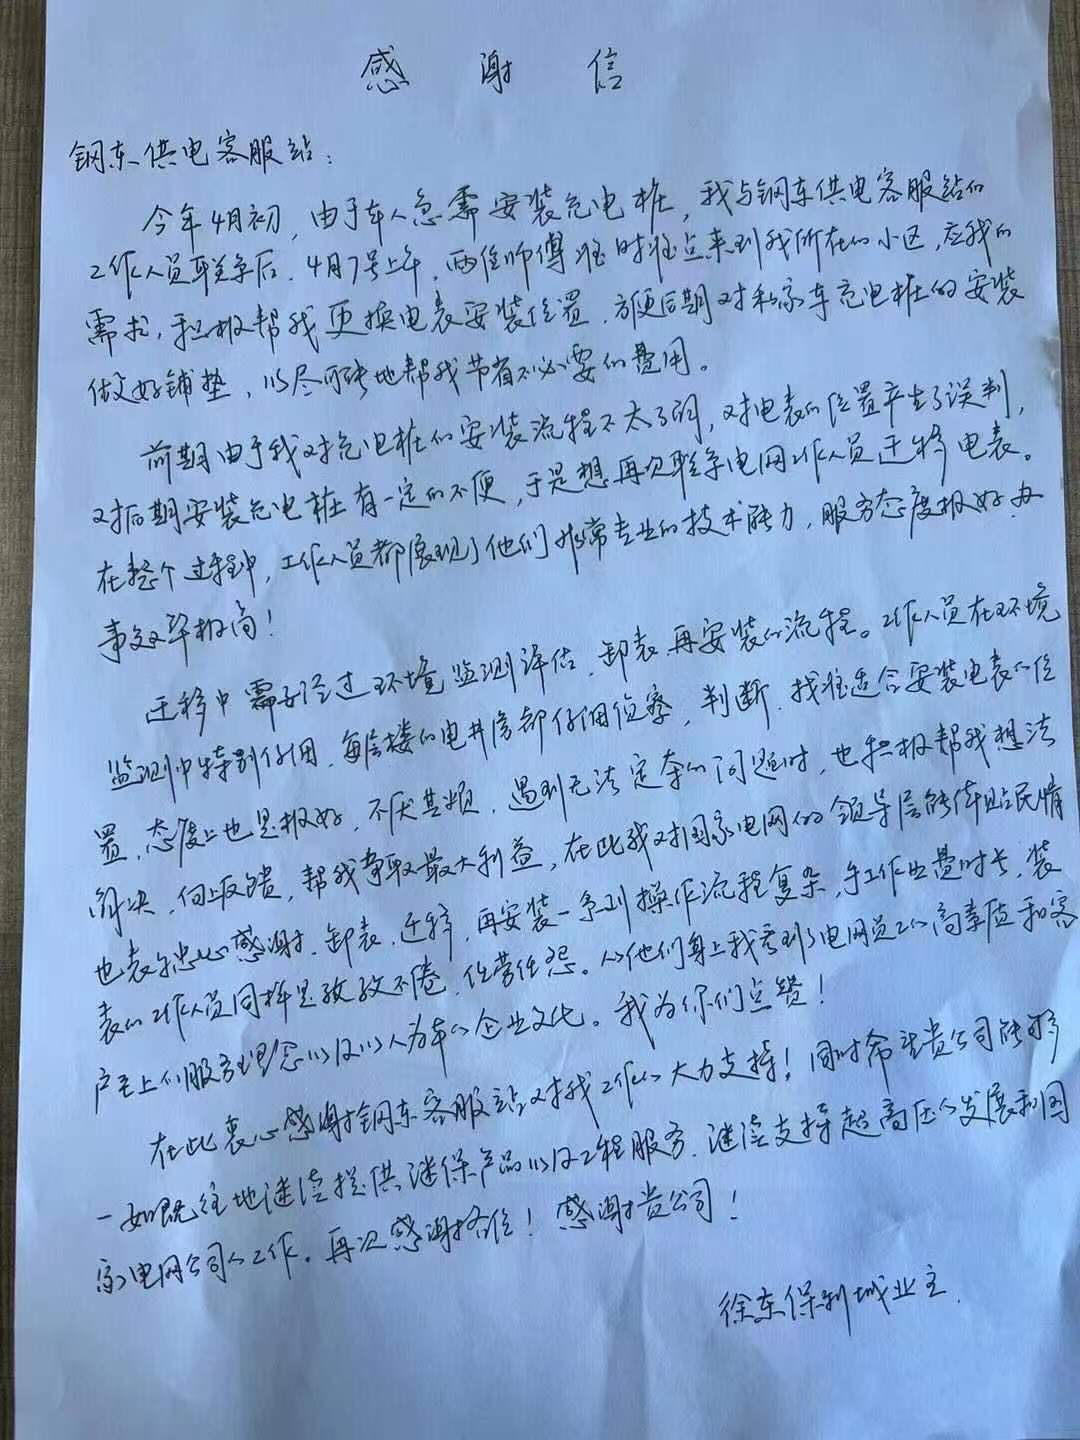 感谢信
钢东供电客服站：
今年4月初，由于本人急需安装充电桩，我与钢东供电客服站的
工作人员联系后，4月7号上午，两位师傅准时准点来到我所在的小区，应我的
需求，积极帮我更换电表安装位置，方便后期对私家车充电桩的安装
做好铺垫，以尽可能地帮我节省不必要的费用。
前期由于我对充电桩的安装流程不太了解，对电表的位置产生了误判，
对后期安装充电桩有一定的不便，于是想再次联系电网工作人员迁移电表。
在整个过程中，工作人员都展现了他们非常专业的技术能力，服务态度极好，办
事效率极高！
迁移中需要经过环境监测评估、卸表、再安装的流程。工作人员在环境
监测中特别仔细，每层楼的电井房都仔细侦察，判断，找准适合安装电表的位
置，态度上也是极好，不厌其烦，遇到无法定夺的问题时，也积极帮我想法
解决，向上反馈，帮我争取最大利益，在此我对国家电网的领导层能体贴民情
也表示忠心感谢，卸表，迁移，再安装一系列操作流程复杂，手工作业费时长，装
表的工作人员同样是孜孜不倦，任劳任怨。从他们身上我看到了电网员工的高素质和客
户至上的服务理念以及以人为本的企业文化。我为你们点赞！
在此衷心感谢钢东客服站对我工作的大力支持！同时希望贵公司能够
一如既往地继续提供继保产品以及工程服务，继续支持超高压的发展和国
家电网公司的工作。再次感谢各位！感谢贵公司！
徐东保利城业主